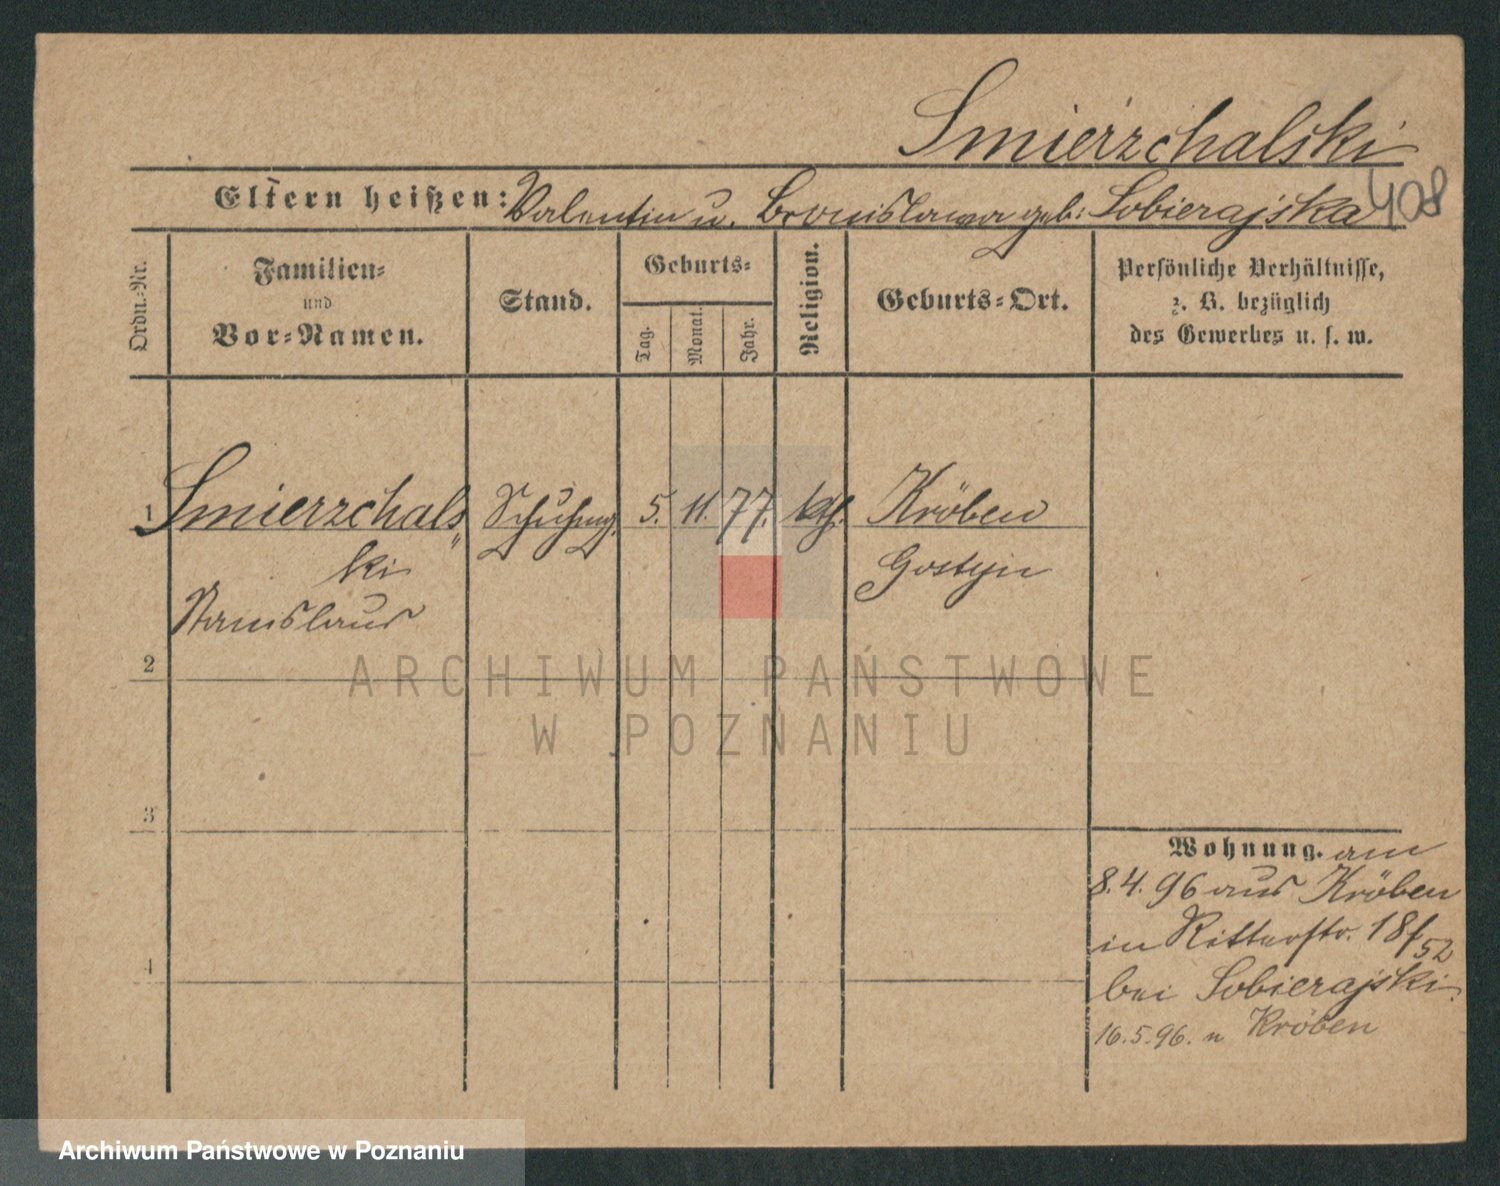 Smierzchalski
408
Eltern heißen: Valentin u. Bronislawa geb: Sobierajska
Ordn.-Nr.
Familien-
und
Vor-Namen.
Stand.
Geburts-
Tag.
Monat.
Jahr.
Religion.
Geburts-Ort.
Persönliche Verhältnisse,
z. B. bezüglich
des Gewerbes u. s. w.
1 Smierzchals„ Schuhm. 5. 11. 77. kth. Kröben
ki Gostyn
Stanislaus
2
ARCHIWUM PAŃSTWOWE
W POZNANIU
3
Wohnung. am
8.4.96 aus Kröben
in Ritterstr. 18/52
bei Sobierajski.
4
16.5.96. n Kröben
Archiwum Państwowe w Poznaniu